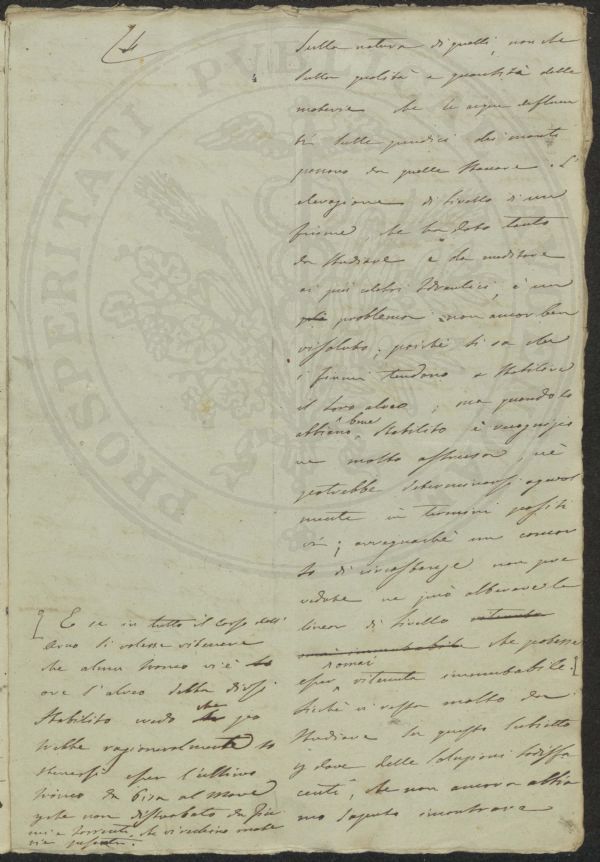 4
sulla natura di quelli, non che
sulla qualità e quantità delle
materie che le acque defluen
ti sulle pendici dei monti
ponno da quelle staccare. L'
elevazione di livello di un
fiume, che ha dato tanto
da studiare e da meditare
ai più celebri Idraulici, è un
problema non ancor ben
rissoluto; poichè si sa che
i fiumi tendono a stabilire
il loro alveo; ma quando lo
abbiano bene stabilito è
molto astrusa, nè
potrebbe determinarsi
mente in termini positi
vi; avvegnachè un concor
to di circostanze non pre
vedute ne può alterare la
linea di livello ritenuta
omai immutabile che potesse
esser omai ritenuta immutabile.]
Sicchè vi resta molto da
studiare su questo subietto
e dare delle soluzioni sodisfa
centi, che non ancora abbia
mo saputo incontrare
[E se in tutto il corso dell'
Arno si volesse ritenere
che alcun tronco vi è
ove l'alveo della diossi
stabilito credo che po
trebbe ragionevolmente so
stenersi esser l'ultimo
tronco da Pisa al Mare
perchè non disturbato da fiu
mi e torrenti, che vi rechino mate
rie pesanti.
PROSPERITATI PVBLICAE